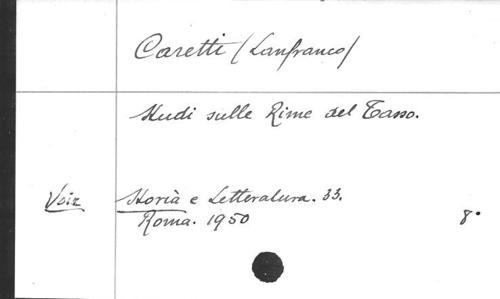 Caretti (Lanfranco)
Studi sulle Rime del Tasso.
Voir Storia e Letteratura. 33.
Roma. 1950 8°